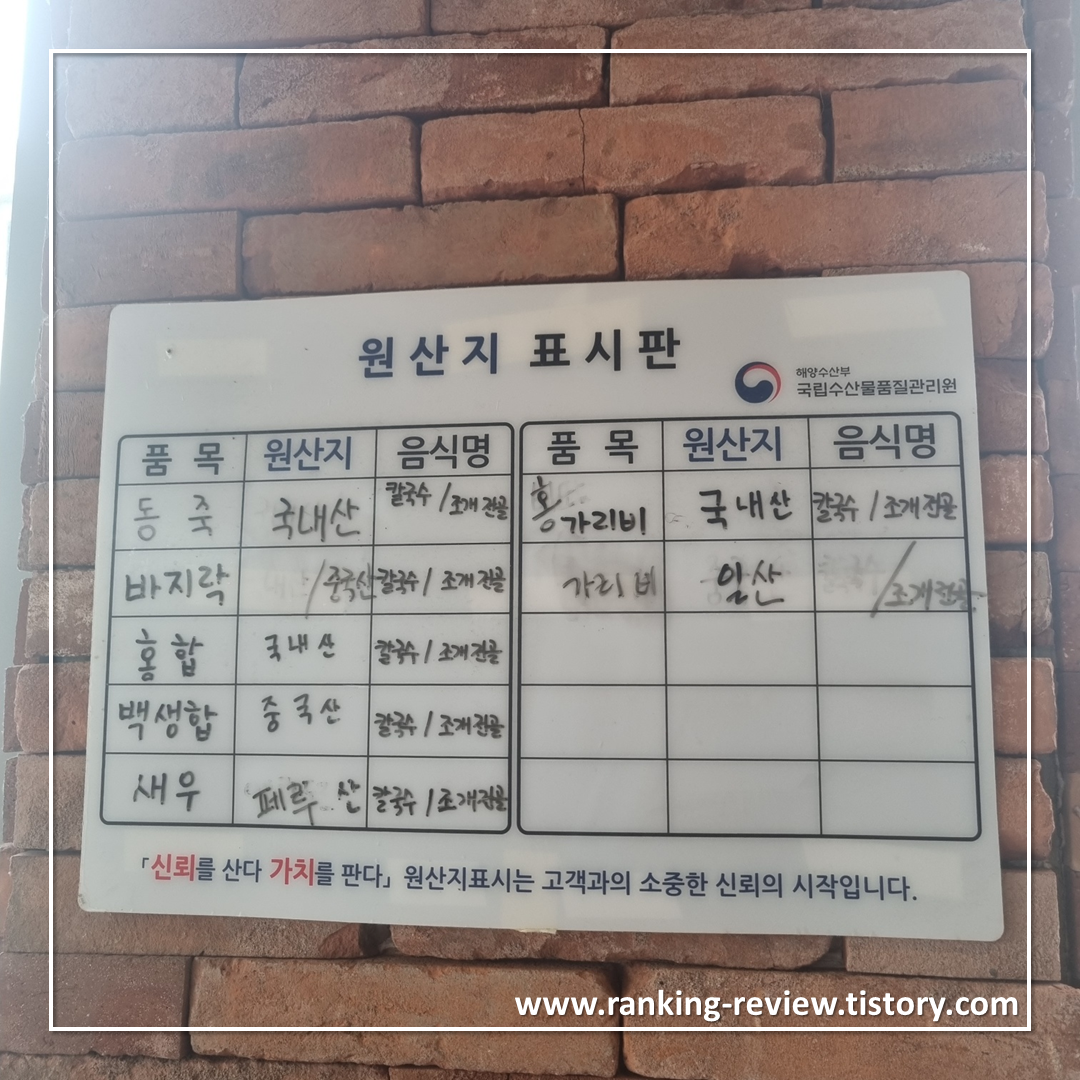 원산지 표시판
해양수산부
국립수산물품질관리원
품 목 원산지 음식명
동 죽 국내산 칼국수 / 조개전골
바지락 / 중국산 칼국수 / 조개전골
홍합 국내산 칼국수 / 조개전골
백생합 중국산 칼국수 / 조개전골
새우 페루산 칼국수 / 조개전골
품 목 원산지 음식명
홍가리비 국내산 칼국수 / 조개전골
가리비 일산 / 조개전골
「신뢰를 산다 가치를 판다」 원산지표시는 고객과의 소중한 신뢰의 시작입니다.
www.ranking-review.tistory.com